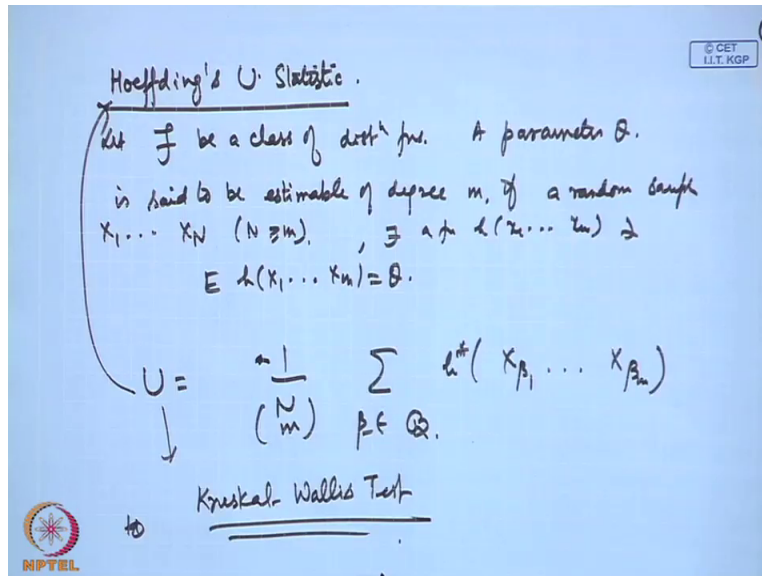 © CET
I.I.T. KGP
Hoeffding's U. Statistic.
Let F be a class of distⁿ fns. A parameter θ.
is said to be estimable of degree m, if a random sample
X₁ ... X_N (N ≥ m), ∃ a fn h(x₁ ... x_m) ∋
E h(X₁ ... X_m) = θ.
U = 1/(N m) Σ β ∈ B. h*( X_β₁ ... X_βm )
Kruskal-Wallis Test
NPTEL